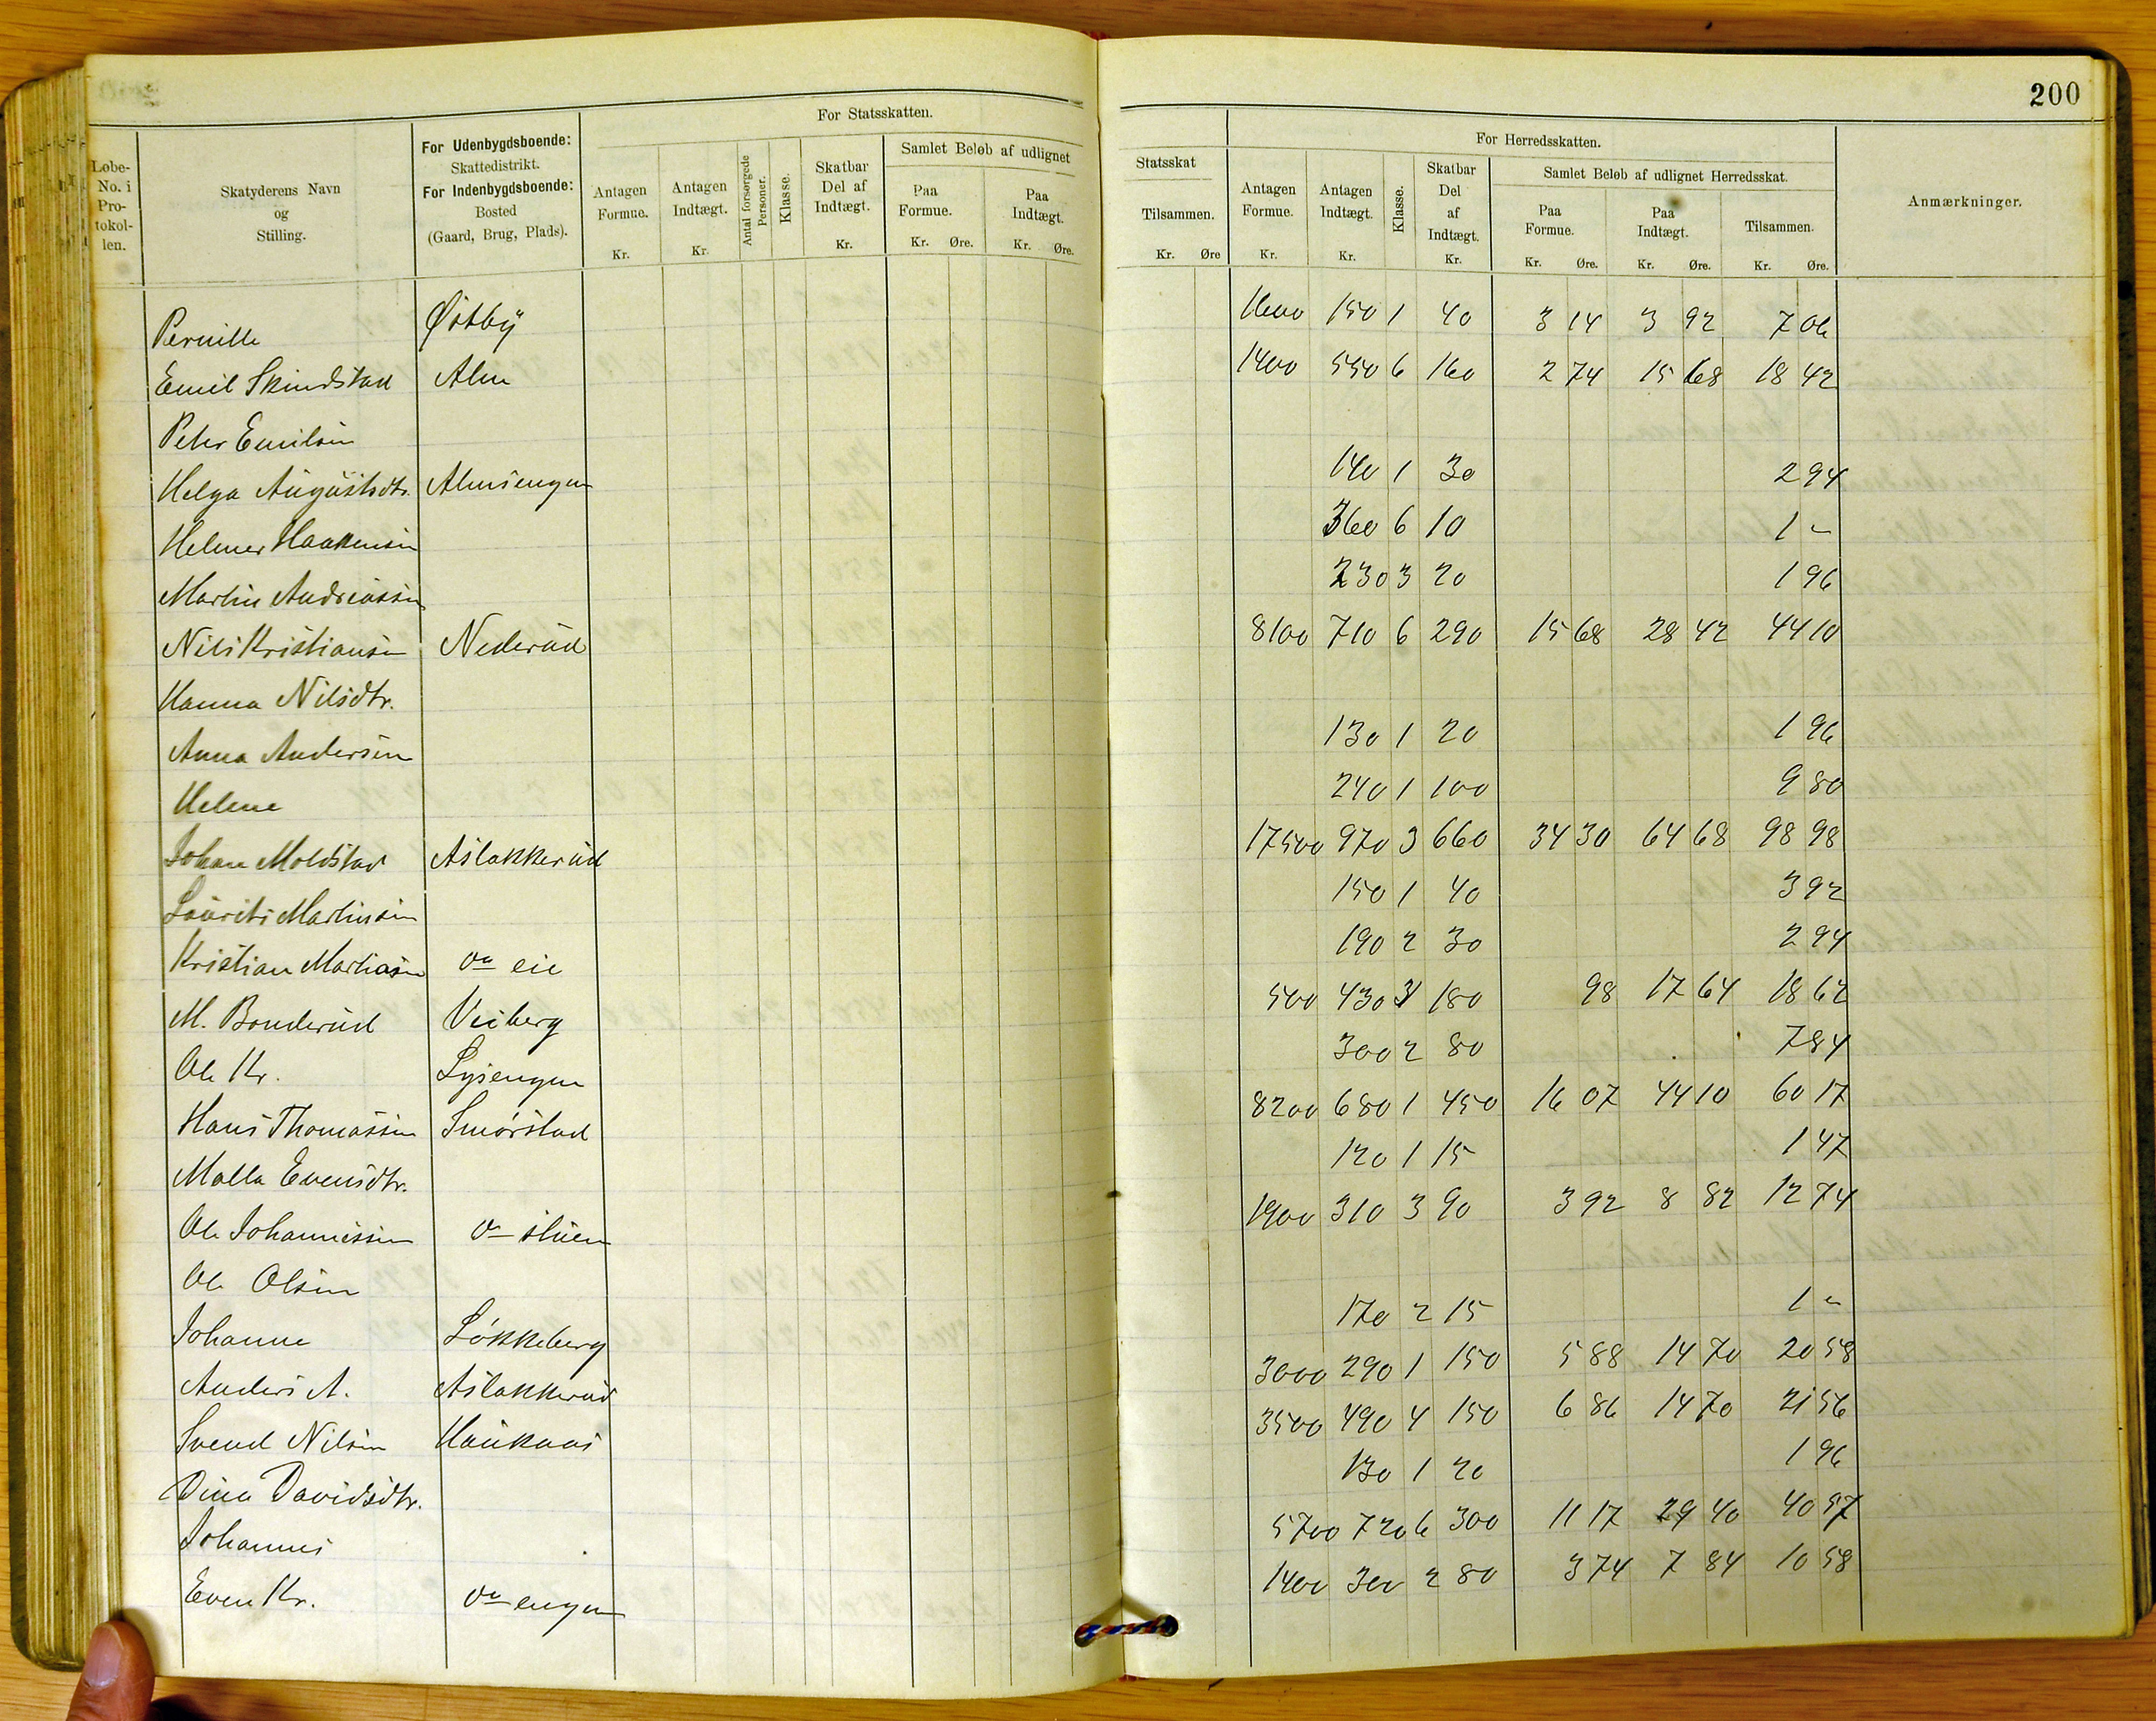 200
For Statsskatten.
For Herredsskatten.
Løbe-No. i Protokollen.
Skatyderens Navn og Stilling.
For Udenbygdsboende: Skattedistrikt. For Indenbygdsboende: Bosted (Gaard, Brug, Plads).
Antagen Formue. Kr.
Antagen Indtægt. Kr.
Antal forsørgede Personer.
Klasse.
Skatbar Del af Indtægt. Kr.
Samlet Beløb af udlignet
Paa Formue. Kr. Øre.
Paa Indtægt. Kr. Øre.
Statsskat
Tilsammen. Kr. Øre
Antagen Formue. Kr.
Antagen Indtægt. Kr.
Klasse.
Skatbar Del af Indtægt. Kr.
Samlet Beløb af udlignet Herredsskat.
Paa Formue. Kr. Øre.
Paa Indtægt. Kr. Øre.
Tilsammen. Kr. Øre.
Anmærkninger.
Pernille Østby 1600 150 1 40 3 14 3 92 7 06
Emil Skindstad Alm 1400 550 6 160 2 74 15 68 18 42
Peter Emilsen
Helga Augustsdtr. Almsengen 140 1 30 2 94
Helmer Haakensen 360 6 10 1 -
Martin Andreassen 230 3 20 1 96
Nils Kristiansen Nederud 8100 710 6 290 15 68 28 42 44 10
Hanna Nilsdtr.
Anna Andersen 130 1 20 1 96
Helene 240 1 100 9 80
Johan Moldstad Aslakkerud 17500 970 3 660 34 30 64 68 98 98
Laurits Martinsen 150 1 40 3 92
Kristian Martinsen do eie 190 2 30 2 94
M. Bonderud Veiberg 500 430 3 180 98 17 64 18 62
Ole Kr. Lysengen 300 2 80 7 84
Hans Thomassen Smørstad 8200 680 1 450 16 07 44 10 60 17
Malla Evensdtr. 120 1 15 1 47
Ole Johannessen do stuen 1900 310 3 90 3 92 8 82 12 74
Ole Olsen
Johanne Løkkeberg 170 2 15 1 -
Anders A. Aslakkerud 3000 290 1 150 5 88 14 70 20 58
Svend Nilsen Haukaas 3500 490 4 150 6 86 14 70 21 56
Dina Davidsdtr. 130 1 20 1 96
Johannes 5700 720 6 300 11 17 29 40 40 57
Even Kr. do engen 1400 300 2 80 3 74 7 84 10 58